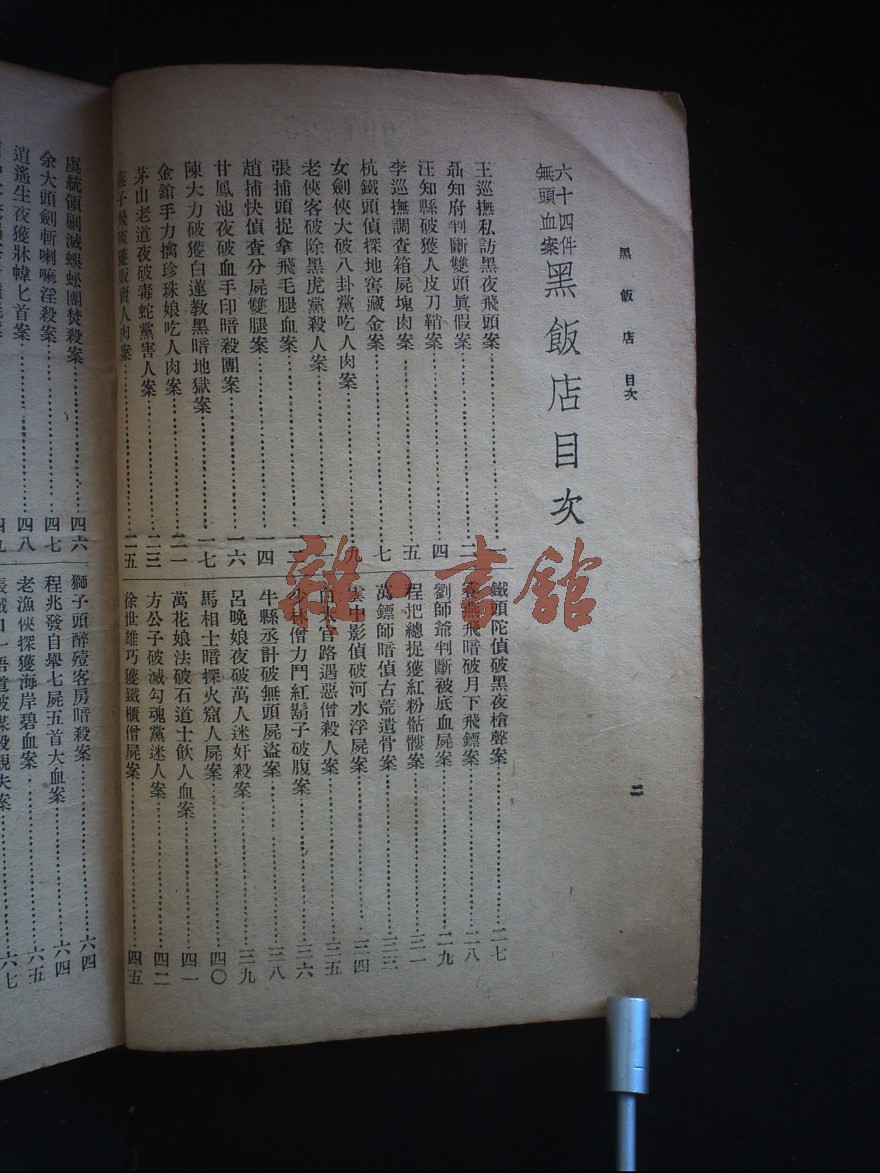 黑飯店 目次
二
六十四件
無頭血案
黑飯店目次
王巡撫私訪黑夜飛頭案⋯⋯二
聶知府判斷雙頭眞假案
汪知縣破獲人皮刀鞘案⋯⋯四
李巡撫調查箱屍塊肉案⋯⋯五
杭鐵頭偵探地窖藏金案⋯⋯七
女劍俠大破八卦黨吃人肉案⋯⋯九
老俠客破除黑虎黨殺人案
張捕頭捉拿飛毛腿血案
趙捕快偵查分屍雙腿案⋯⋯一四
甘鳳池夜破血手印暗殺團案⋯⋯一六
陳大力破獲白蓮教黑暗地獄案⋯⋯一七
金鎗手力擒珍珠娘吃人肉案⋯⋯二一
茅山老道夜破毒蛇黨害人案⋯⋯二三
燕子飛破獲販賣人肉案⋯⋯二五
鐵頭陀偵破黑夜槍聲案⋯⋯二七
燕飛暗破月下飛鏢案⋯⋯二八
劉師爺判斷被底血屍案⋯⋯二九
程把總捉獲紅粉骷髏案⋯⋯三一
萬鏢師暗偵古荒遺骨案⋯⋯三三
雲中影偵破河水浮屍案⋯⋯三四
太官路遇惡僧殺人案⋯⋯三五
少林僧力鬥紅鬍子破腹案⋯⋯三六
牛縣丞計破無頭屍盜案⋯⋯三八
呂晚娘夜破萬人迷奸殺案⋯⋯三九
馬相士暗探火窟人屍案⋯⋯四〇
萬花娘法破石道士飲人血案⋯⋯四一
方公子破滅勾魂黨迷人案⋯⋯四二
徐世雄巧獲鐵櫃僧屍案⋯⋯四五
虞統領剿滅蜈蚣團焚殺案⋯⋯四六
余大頭劍斬喇嘛淫殺案⋯⋯四七
逍遙生夜獲牀幃匕首案⋯⋯四八
四九
獅子頭醉殪客房暗殺案⋯⋯六四
程兆發自舉七屍五首大血案⋯⋯六四
老漁俠探獲海岸碧血案⋯⋯六五
六七
雜·書館